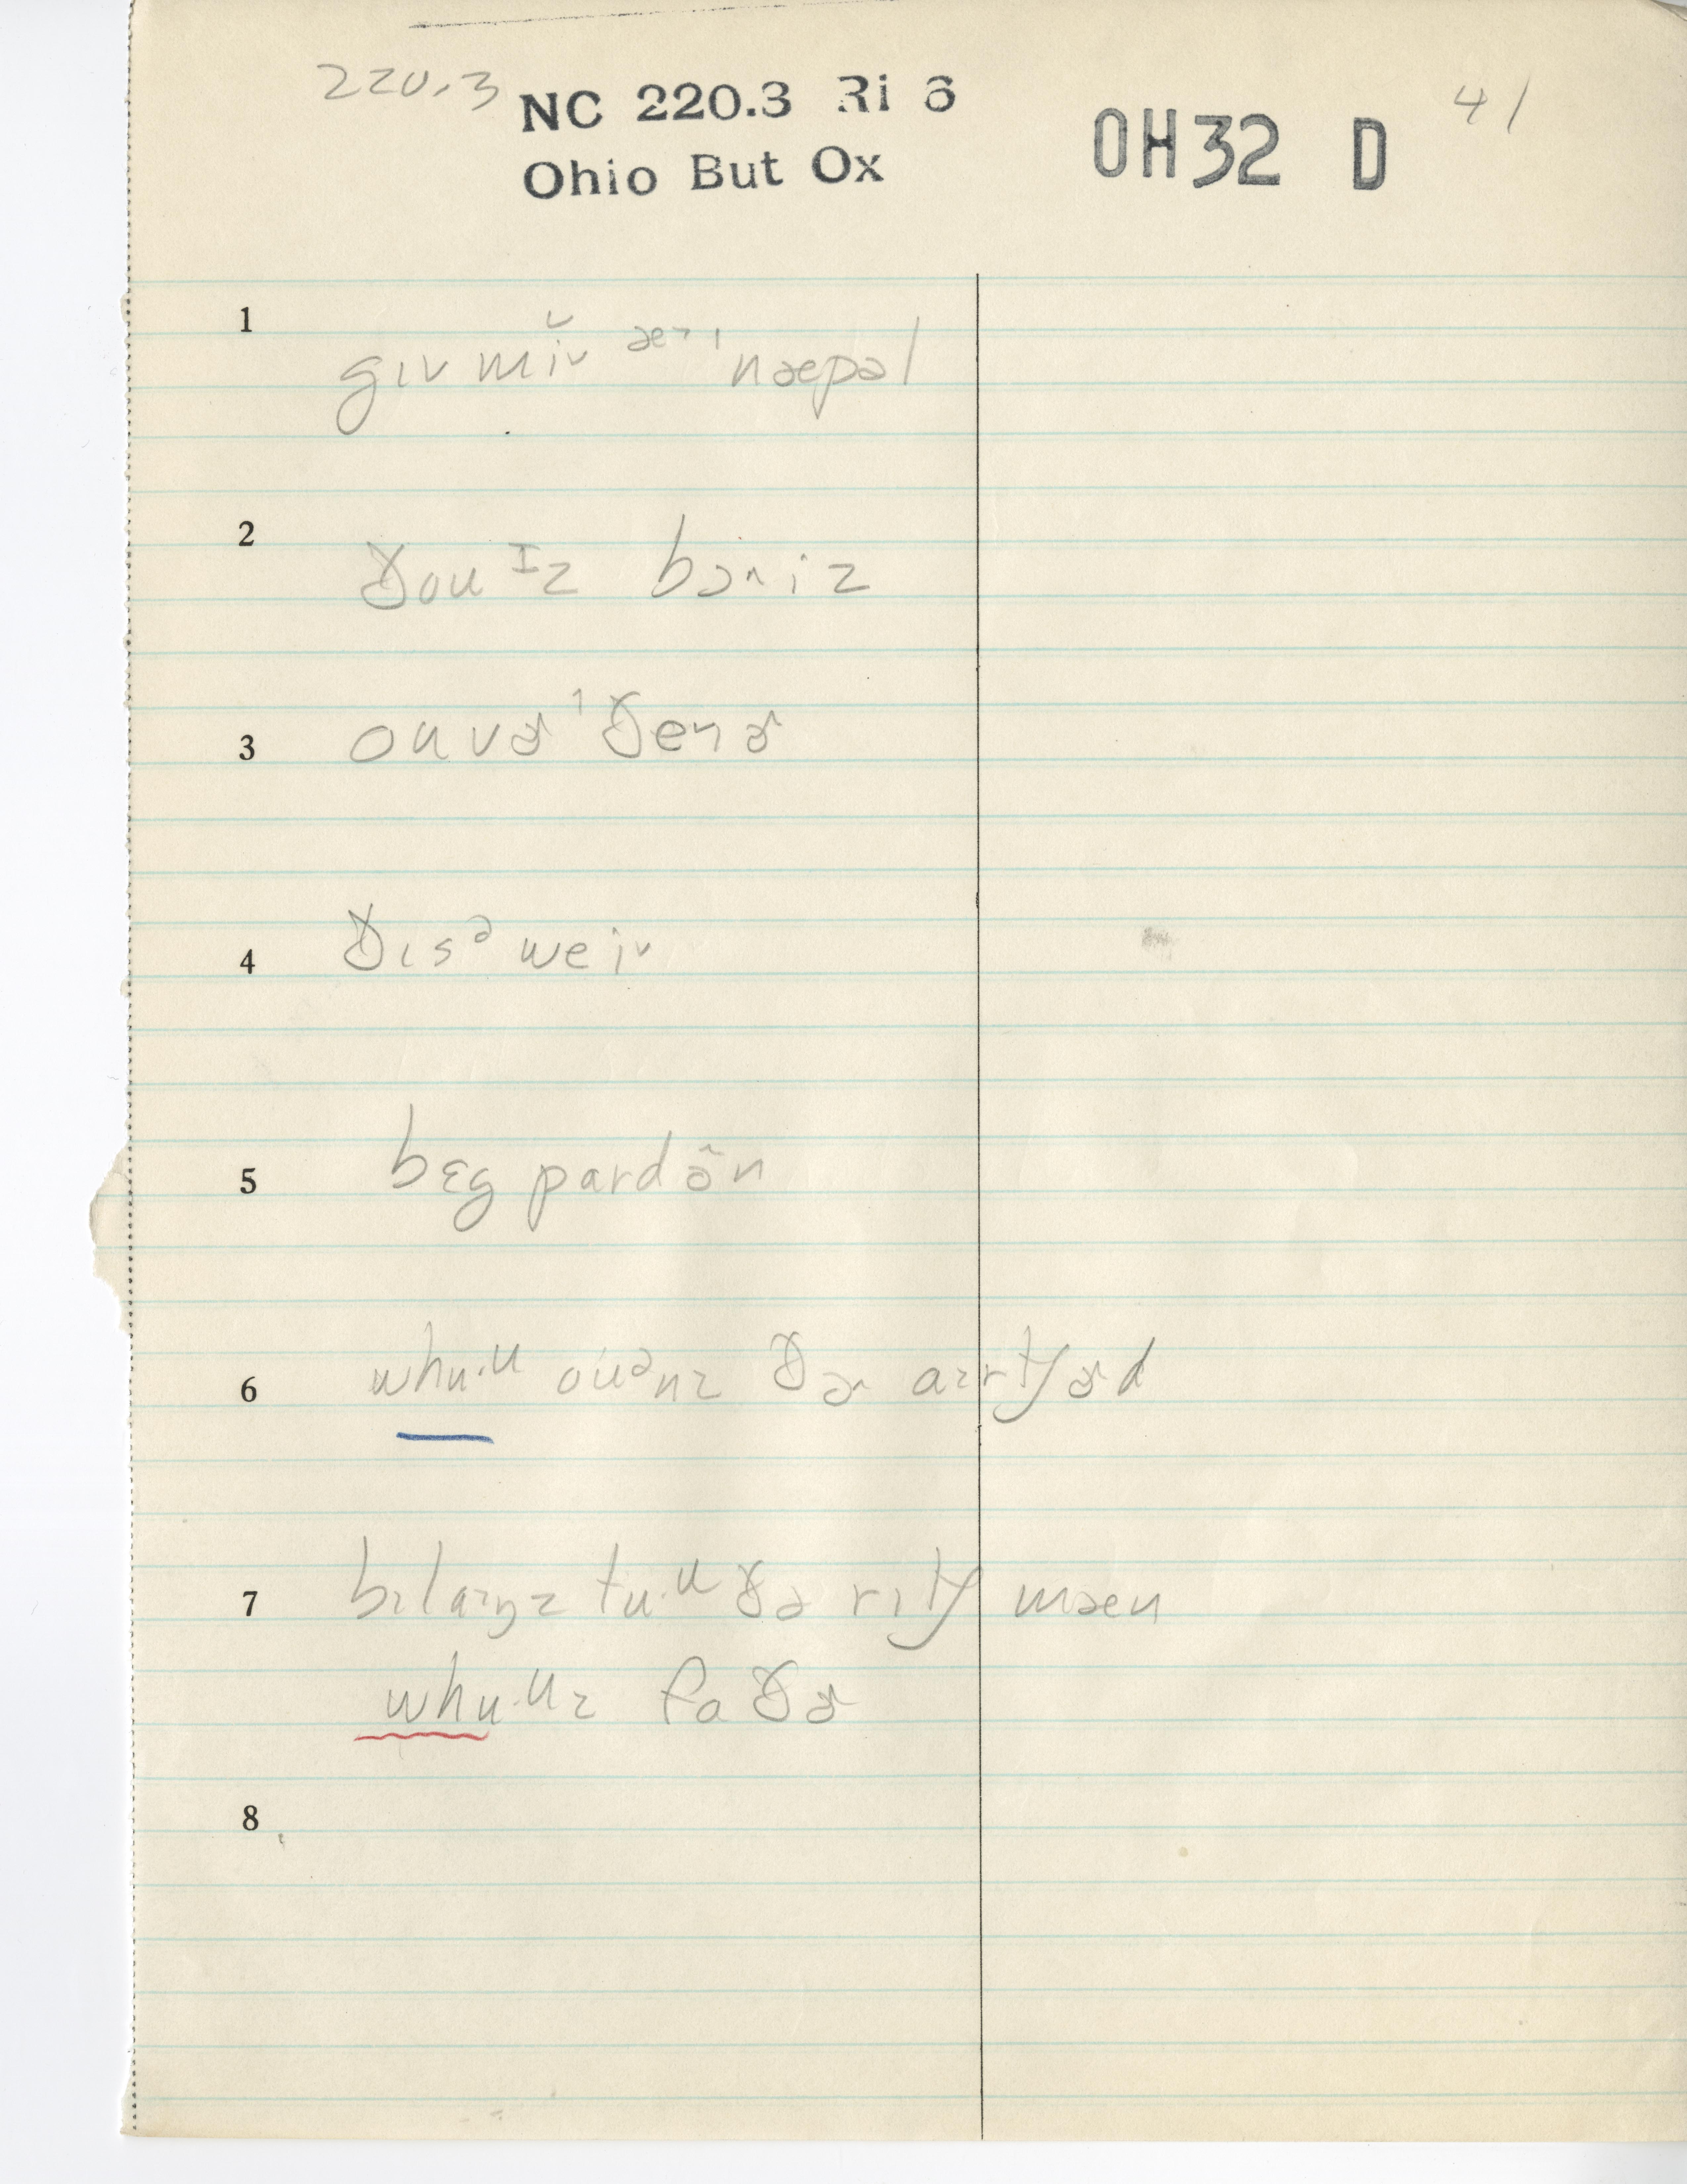 220.3 NC 220.3 Ri 6 41
Ohio But Ox OH32 D
1 gɪv mi˅ æ˃ ˈnæpəl
2 ðou ɪz bɔriz
3 ouvɚ ˈðeɚ
4 ðɪsə wei˅
5 bɛg pardə̃n
6 whu·u ouənz ðə artʃɚd
7 bɪlaŋz tu·u ðə rɪtʃ mæn
whu·uz faðɚ
8